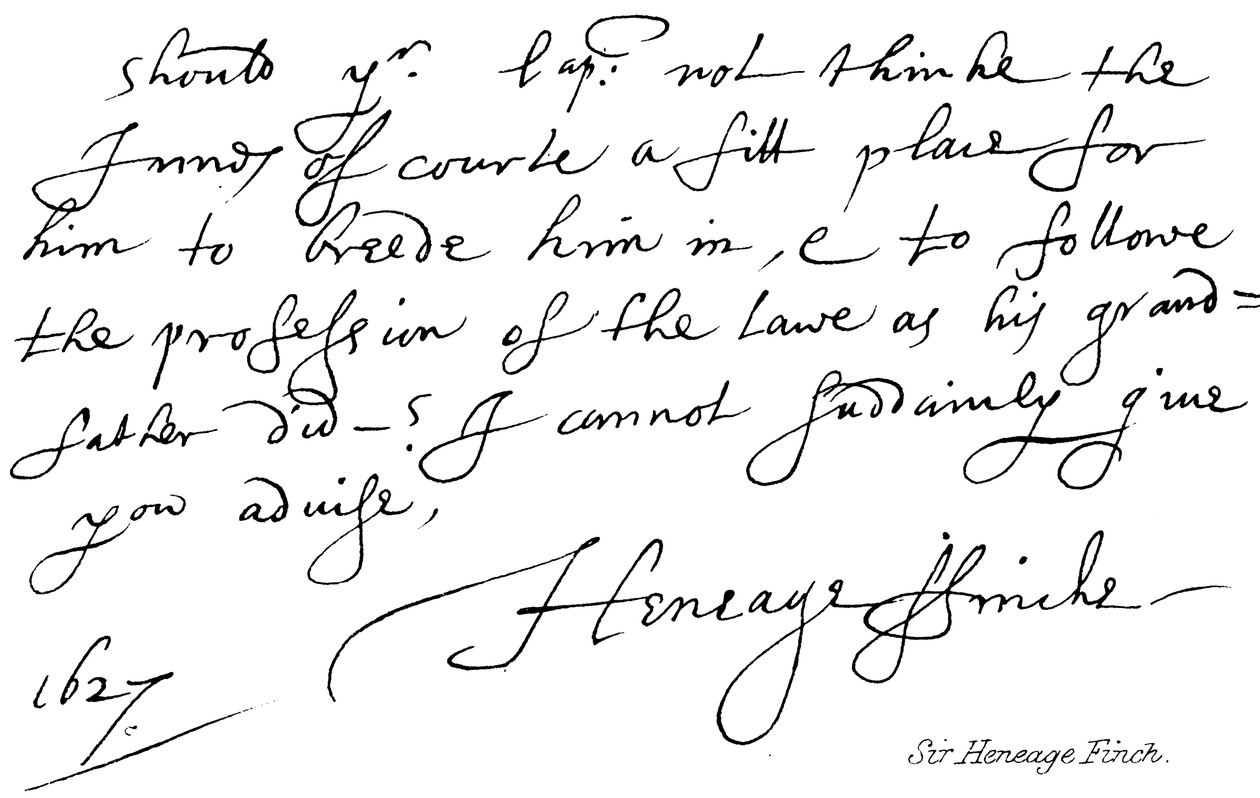 should yr. lap: not thinke the
Innes of courte a fitt place for
him to breede him in, & to followe
the profession of the lawe as his grand=
father did-? I cannot suddainely giue
you aduise,
Heneage ffinche
1627
Sir Heneage Finch.